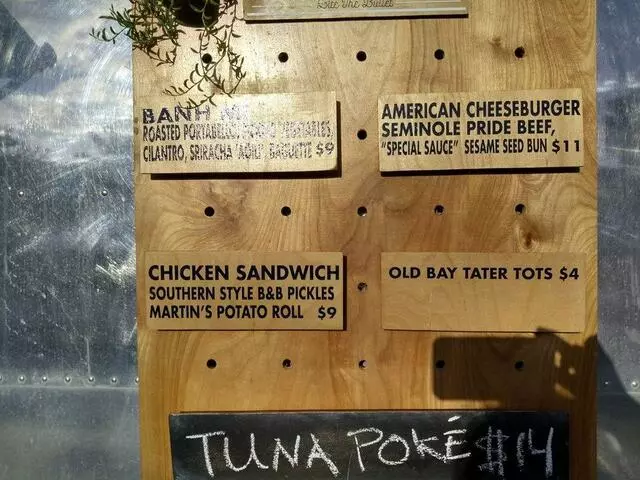 Bite The Bullet
BANH MI
ROASTED PORTABELLO, VEGETABLES,
CILANTRO, SRIRACHA "AOILI" BAGUETTE $9
AMERICAN CHEESEBURGER
SEMINOLE PRIDE BEEF,
"SPECIAL SAUCE" SESAME SEED BUN $11
CHICKEN SANDWICH
SOUTHERN STYLE B&B PICKLES
MARTIN'S POTATO ROLL $9
OLD BAY TATER TOTS $4
TUNA POKÉ $14